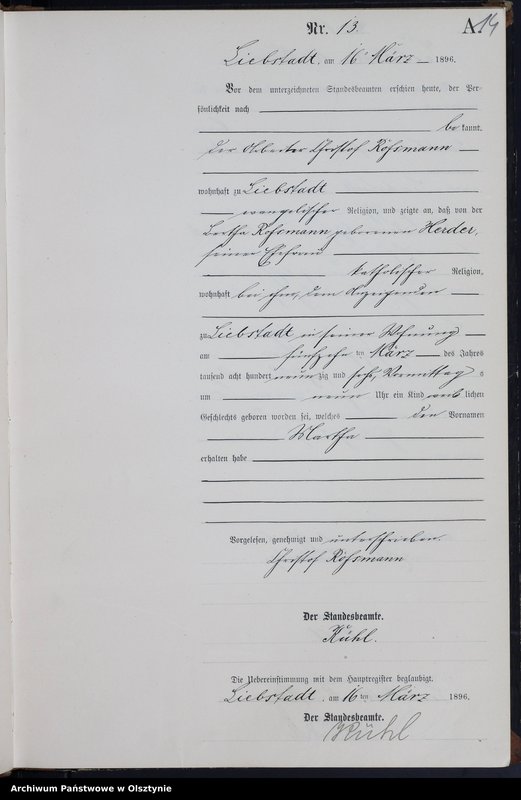 Nr. 13
A. 14
Liebstadt, am 16ten März 1896.
Vor dem unterzeichneten Standesbeamten erschien heute, der Per-
sönlichkeit nach
be kannt,
der Arbeiter Christof Rohsmann
wohnhaft zu Liebstadt
evangelischer Religion, und zeigte an, daß von der
Bertha Rohsmann geborenen Herder,
seiner Ehefrau
katholischer Religion,
wohnhaft bei ihm, dem Anzeigenden
zu Liebstadt in seiner Wohnung
am fünfzehn ten März des Jahres
tausend acht hundert neun zig und sechs, Vormittag s
um neun Uhr ein Kind weib lichen
Geschlechts geboren worden sei, welches den Vornamen
Martha
erhalten habe
Vorgelesen, genehmigt und unterschrieben.
Christof Rohsmann
Der Standesbeamte.
Kühl.
Die Uebereinstimmung mit dem Hauptregister beglaubigt.
Liebstadt, am 16 ten März 1896.
Der Standesbeamte.
Kühl
Archiwum Państwowe w Olsztynie